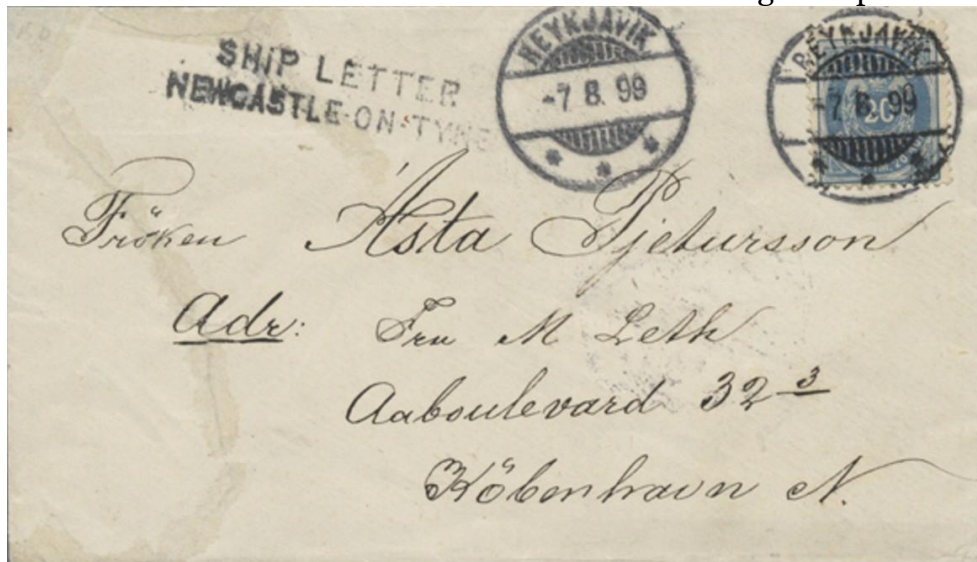 SHIP LETTER
NEWCASTLE-ON-TYNE
REYKJAVIK
-7 8. 99
REYKJAVIK
-7 8. 99
20
Fröken Ásta Pjetursson
Adr: Fru M Leth
Aaboulevard 32 3
Köbenhavn N.